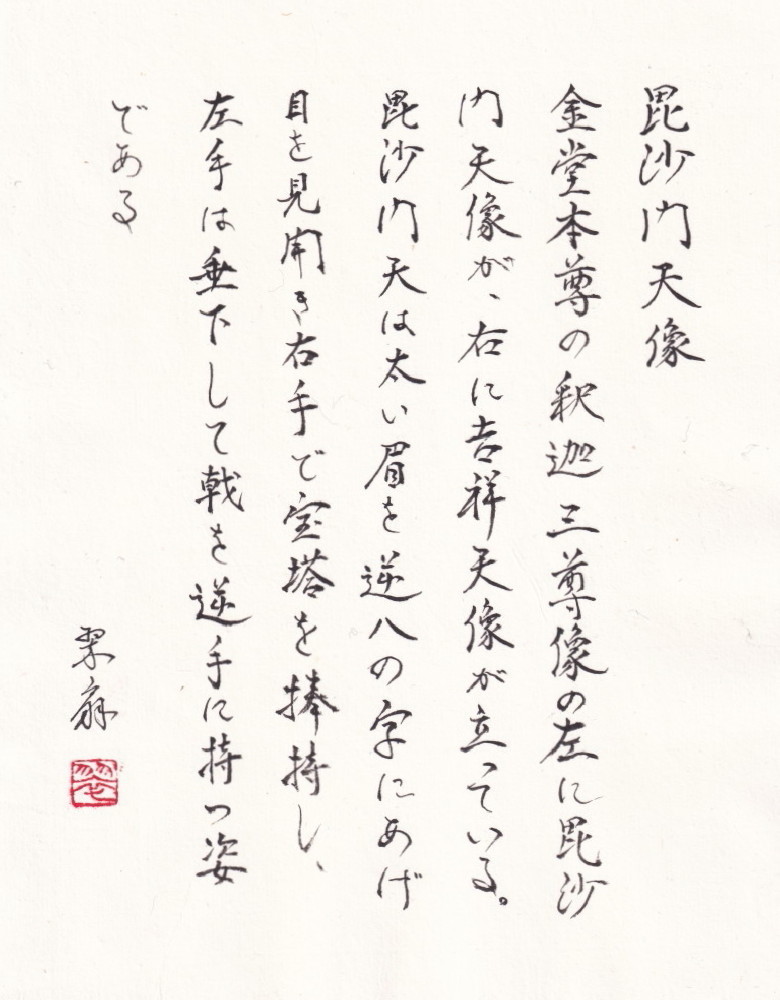 毘沙門天像
金堂本尊の釈迦三尊像の左に毘沙
門天像が、右に吉祥天像が立っている。
毘沙門天は太い眉を逆八の字にあげ
目を見開き右手で宝塔を捧持し、
左手は垂下して戟を逆手に持つ姿
である